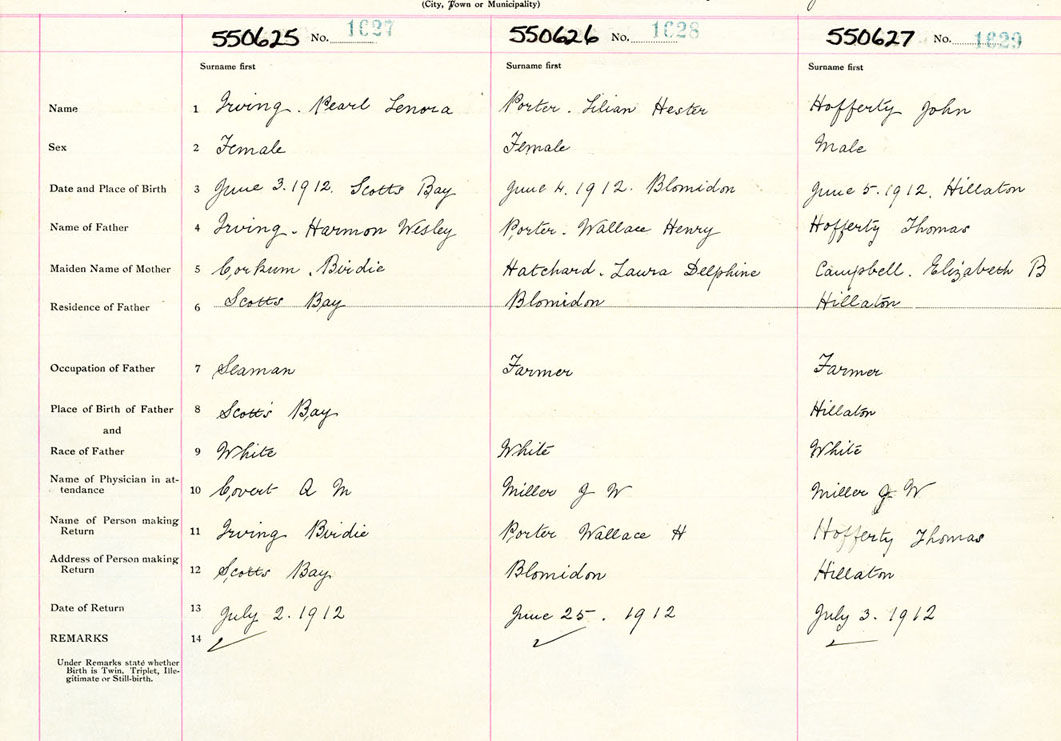 (City, Town or Municipality)
550625 No. 1627 550626 No. 1628 550627 No. 1629
Surname first Surname first Surname first
Name 1 Irving. Pearl Lenora Porter. Lilian Hester Hofferty John
Sex 2 Female Female Male
Date and Place of Birth 3 June 3. 1912. Scotts Bay June 4. 1912. Blomidon June 5. 1912. Hillaton
Name of Father 4 Irving. Harmon Wesley Porter. Wallace Henry Hofferty Thomas
Maiden Name of Mother 5 Corkum. Birdie Hatchard. Laura Delphine Campbell. Elizabeth B
Residence of Father 6 Scotts Bay Blomidon Hillaton
Occupation of Father 7 Seaman Farmer Farmer
Place of Birth of Father 8 Scott's Bay Hillaton
and
Race of Father 9 White White White
Name of Physician in at-
tendance 10 Covert A M Miller J W Miller J W
Name of Person making
Return 11 Irving Birdie Porter Wallace H Hofferty Thomas
Address of Person making
Return 12 Scotts Bay Blomidon Hillaton
Date of Return 13 July 2. 1912 June 25. 1912 July 3. 1912
REMARKS 14
Under Remarks state whether
Birth is Twin, Triplet, Ille-
gitimate or Still-birth.